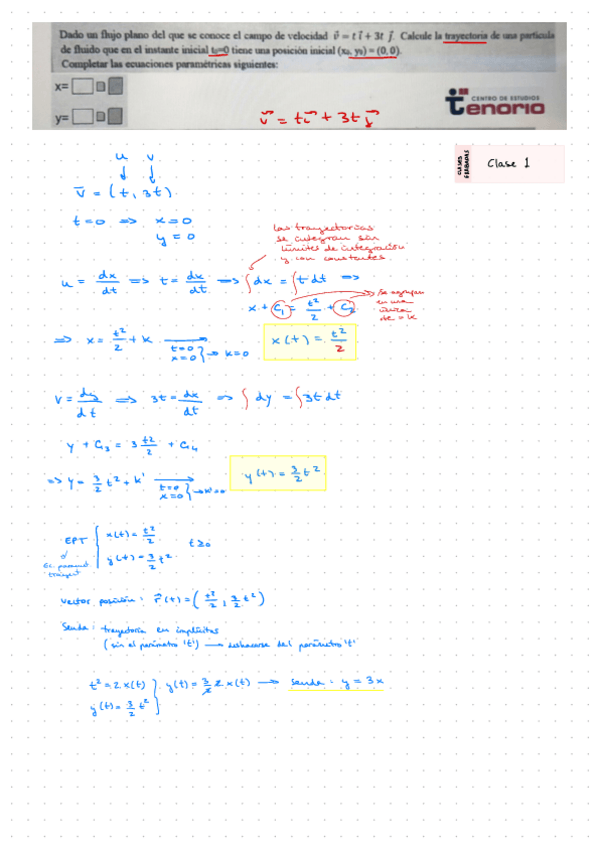 Dado un flujo plano del que se conoce el campo de velocidad v⃗ = t i⃗ + 3t j⃗. Calcule la trayectoria de una partícula
de fluido que en el instante inicial t₀=0 tiene una posición inicial (x₀, y₀) = (0, 0).
Completar las ecuaciones paramétricas siguientes:
x=
y=
v⃗ = t i⃗ + 3t j⃗
CENTRO DE ESTUDIOS
Tenorio
CLASES GRABADAS
Clase 1
u v
↓ ↓
v̄ = (t, 3t)
t=0 => x=0
y=0
Las trayectorias
se integran sin
límites de integración
y con constantes
u = dx/dt => t = dx/dt => ∫dx = ∫t dt =>
x + C₁ = t²/2 + C₂
Se agrupan
en una
única
cte = K
=> x = t²/2 + K
t=0
x=0 } → K=0
x(t) = t²/2
v = dy/dt => 3t = dx/dt => ∫dy = ∫3t dt
y + C₃ = 3 t²/2 + C₄
=> y = 3/2 t² + K'
t=0
x=0 } → K'=0
y(t) = 3/2 t²
EPT { x(t) = t²/2
y(t) = 3/2 t²
t ≥ 0
Ec. paramet
trayect
vector posición: r⃗(t) = (t²/2, 3/2 t²)
Senda: trayectoria en implícitas
(sin el parámetro 't') → deshacerse del parámetro 't'
t² = 2·x(t)
y(t) = 3/2 t² } y(t) = 3/2 2 x(t) → senda: y = 3x